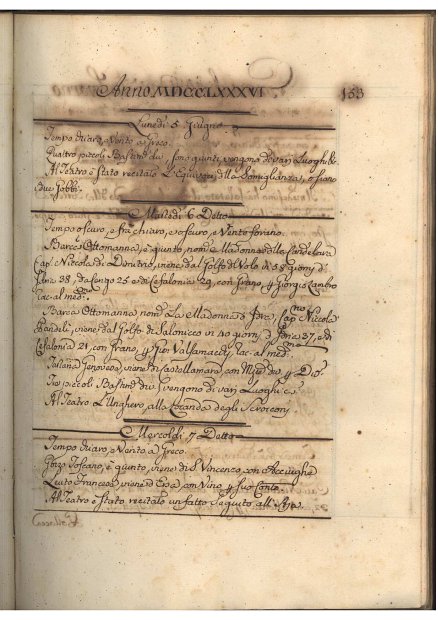 Anno MDCCLXXXVI 153
Lunedì 5 Giugno
Tempo chiaro, e Vento a Greco.
Quattro piccoli Bastim. div. sono giunti, vengono da vari Luoghi &c.
Al Teatro è stato recitato L'Equivoco della Somiglianza, o siano
due Gobbi.
Martedì 6 Detto
Tempo oscuro, e fra chiaro, e oscuro, e Vento forano.
Barca Ottomanna, è giunto, nom. La Madonna della Candelora
Cap. Niccola di Dimitrio, viene dal Golfo di Volo in 58 giorni d'
38, da 25 e di Cefalonia 29, con Grano, p Giorgio
ac. al med.
Barca Ottomanna nom. La Madonna d' Cap.no Niccola
viene dal Golfo di Salonicco in 40 giorni, d 37, e di
Cefalonia 21, con Grano, p Gior. Valsamachi, rac. al med.
Genovese, viene da Castellamare, con div. p
Tre piccoli Bastim. div. vengono da vari Luoghi &c.
Al Teatro L'Unghero, alla Locanda degli
Mercoldì 7 Detto
Tempo chiaro, e Vento a Greco.
Toscano, è giunto, viene di S. Vincenzo con Acciughe
Leuto Francese viene d' con Vino, p suo Conto
Al Teatro è stato recitato un fatto seguito all'